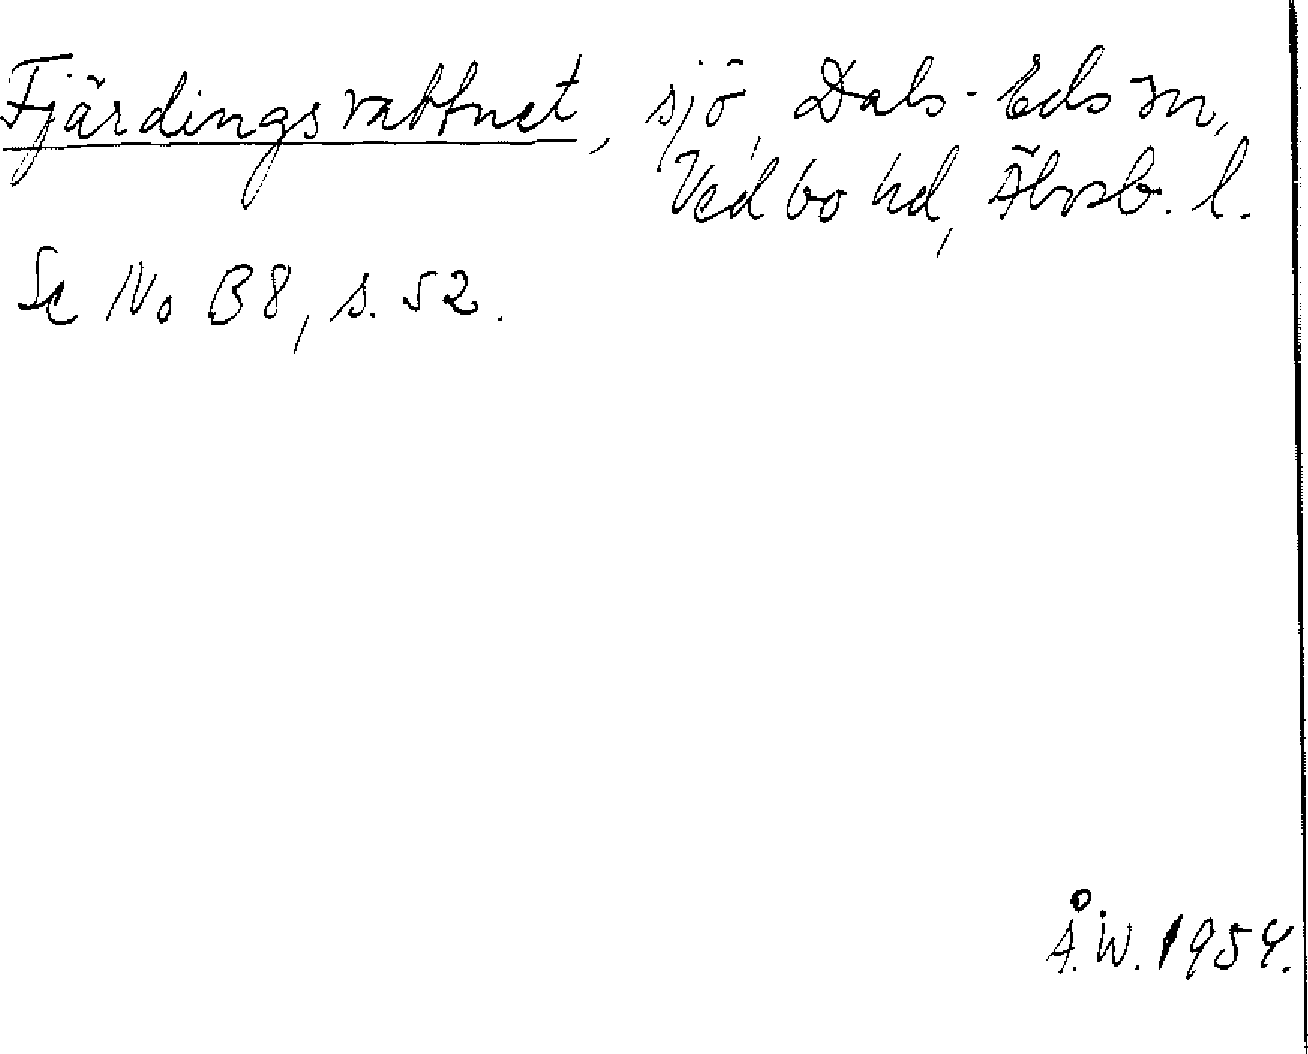 Fjärdingsvattnet, sjö, Dals-Eds sn,
Vedbo hd, Älvsb. l.
Se No B8, s. 52.
Å.W. 1954.